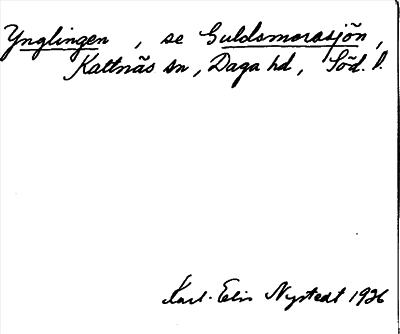 Ynglingen, se Guldsmorasjön,
Kattnäs sn, Daga hd, Söd. l.
Karl-Elis Nystedt 1926